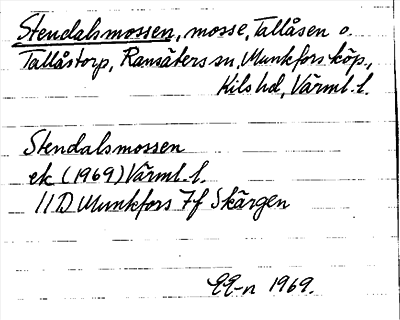 Stendalsmossen, mosse, Tallåsen o.
Tallåstorp, Ransäters sn, Munkfors köp.,
Kils hd, Värml. l.
Stendalsmossen
ek (1969) Värml. l.
11 D Munkfors 7f Skärgen
1969.